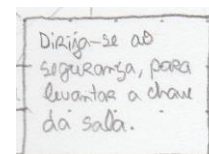 Dirija-se ao
segurança, para
levantar a chave
da sala.